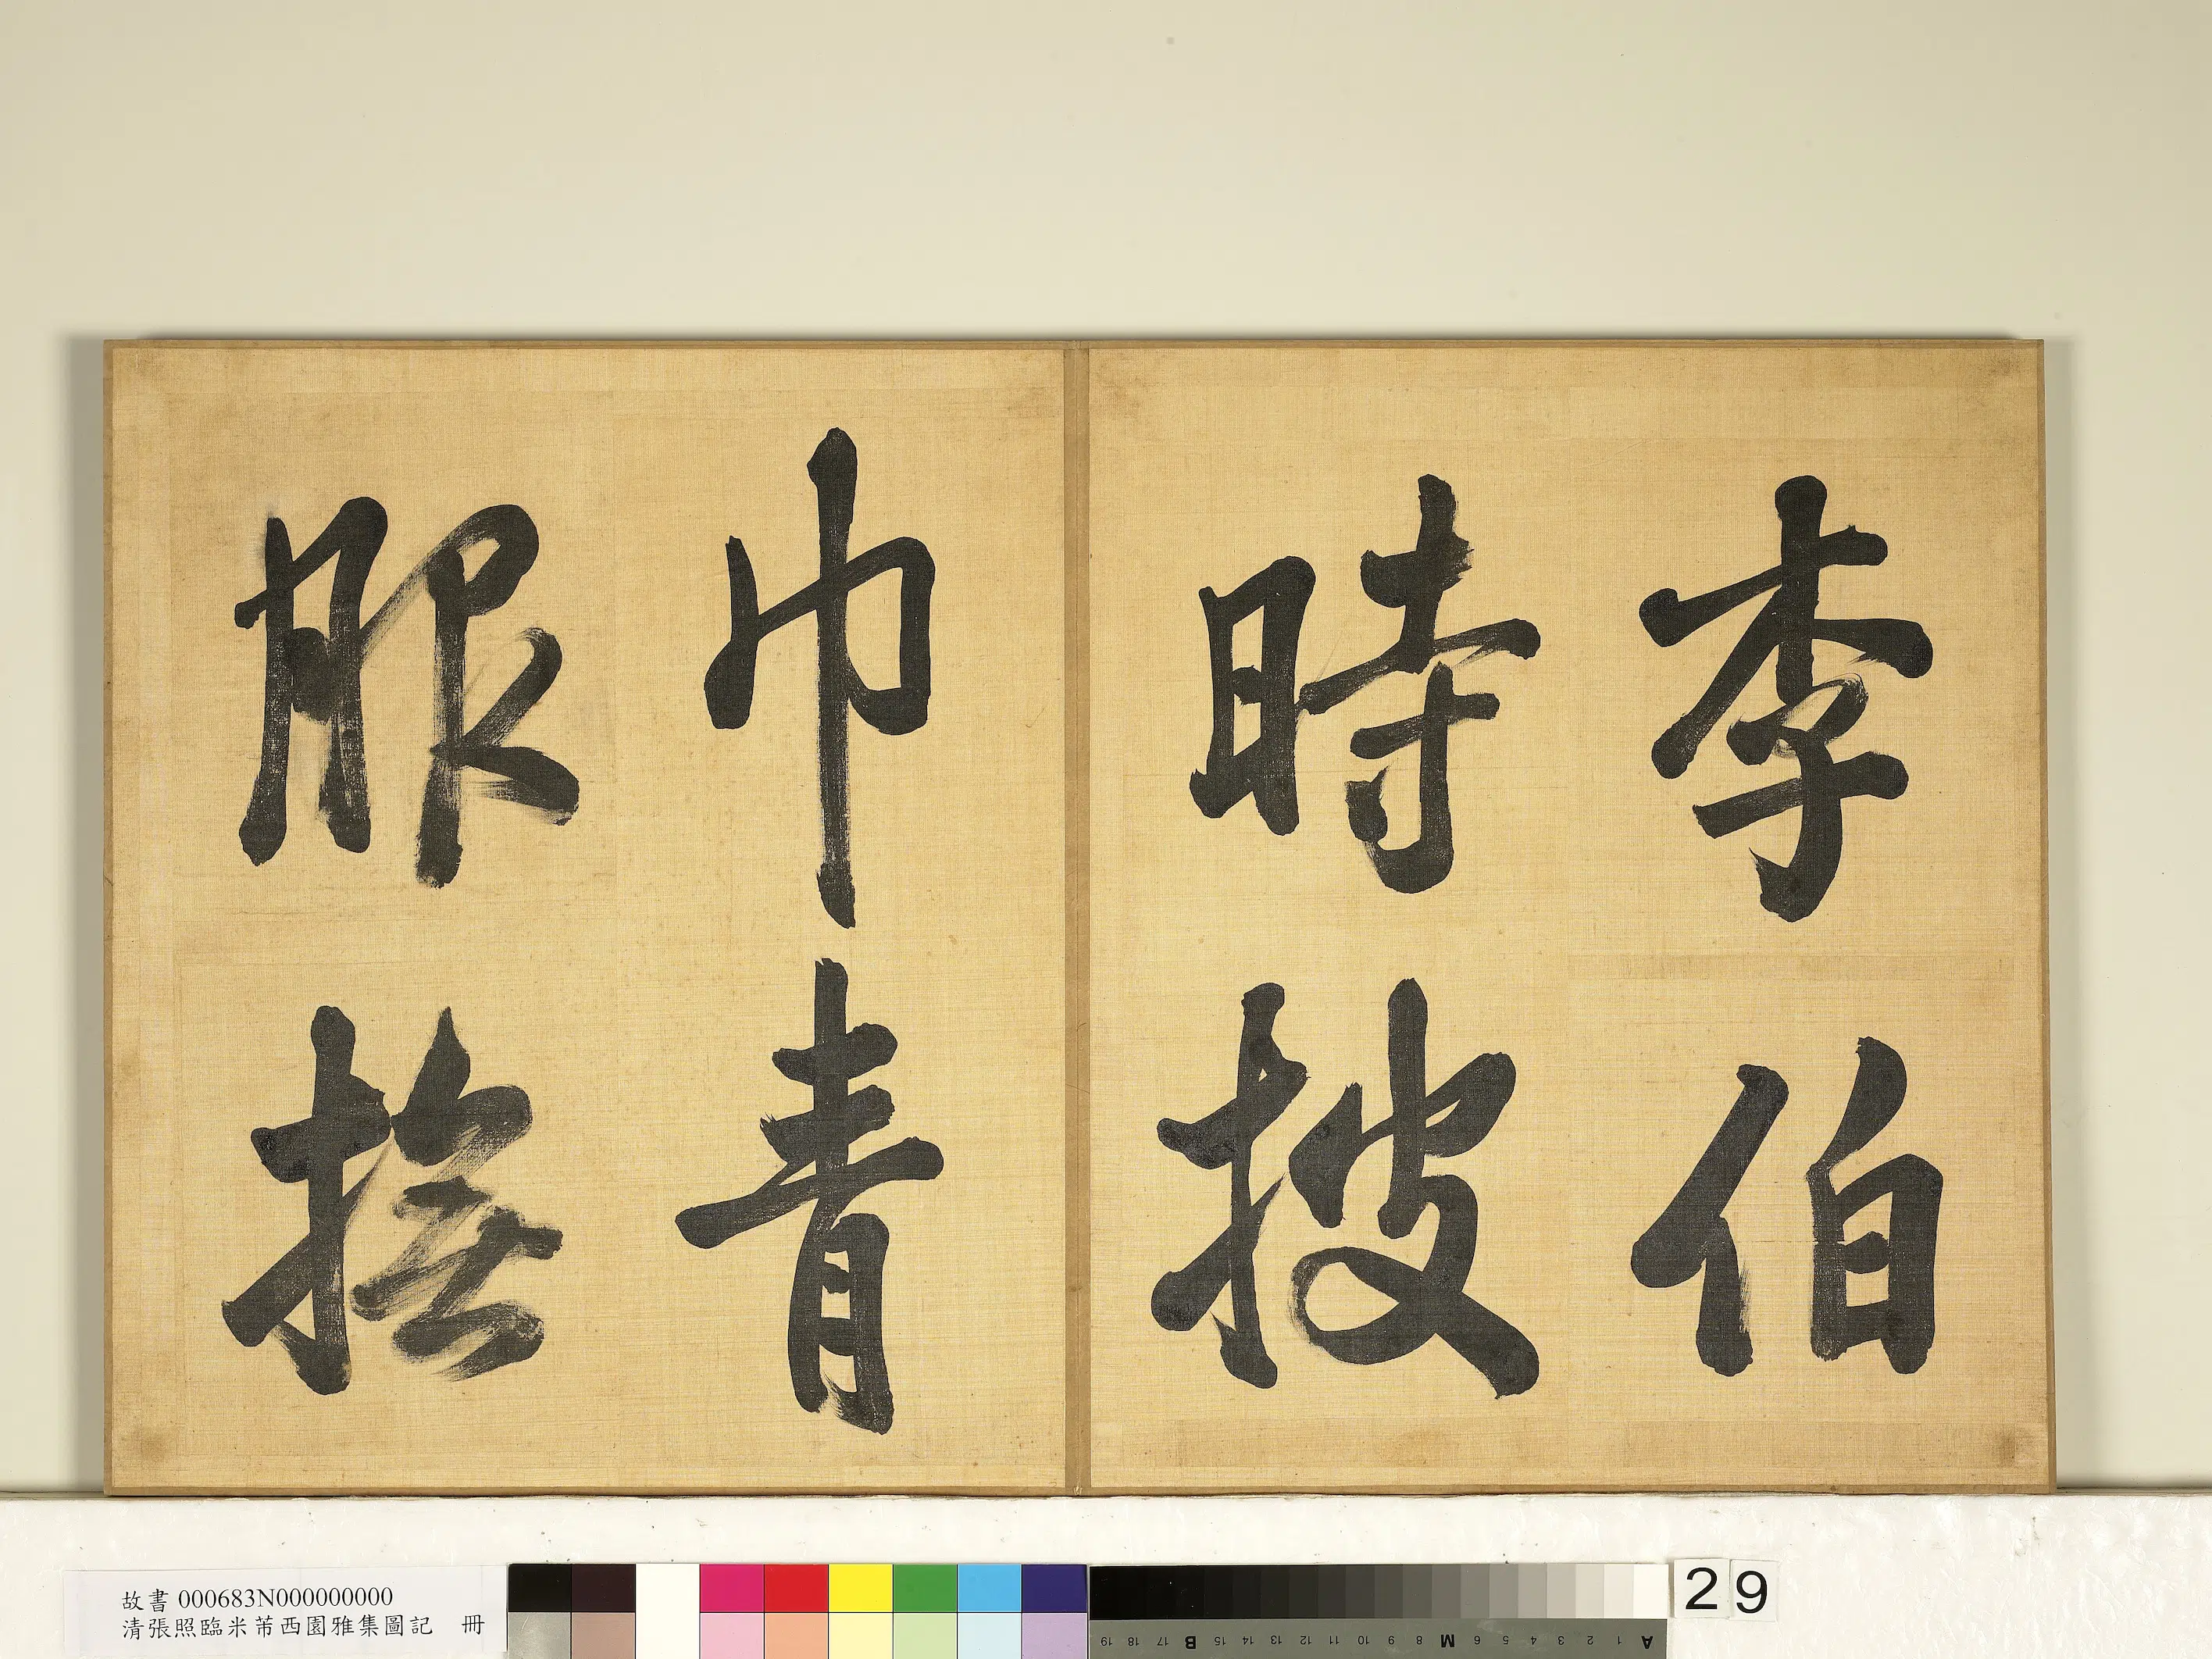 李伯
時披
巾青
服撫
故書 000683N000000000
清張照臨米芾西園雅集圖記 冊
A 1 2 3 4 5 6 M 8 9 10 11 12 13 14 15 B 17 18 19
29